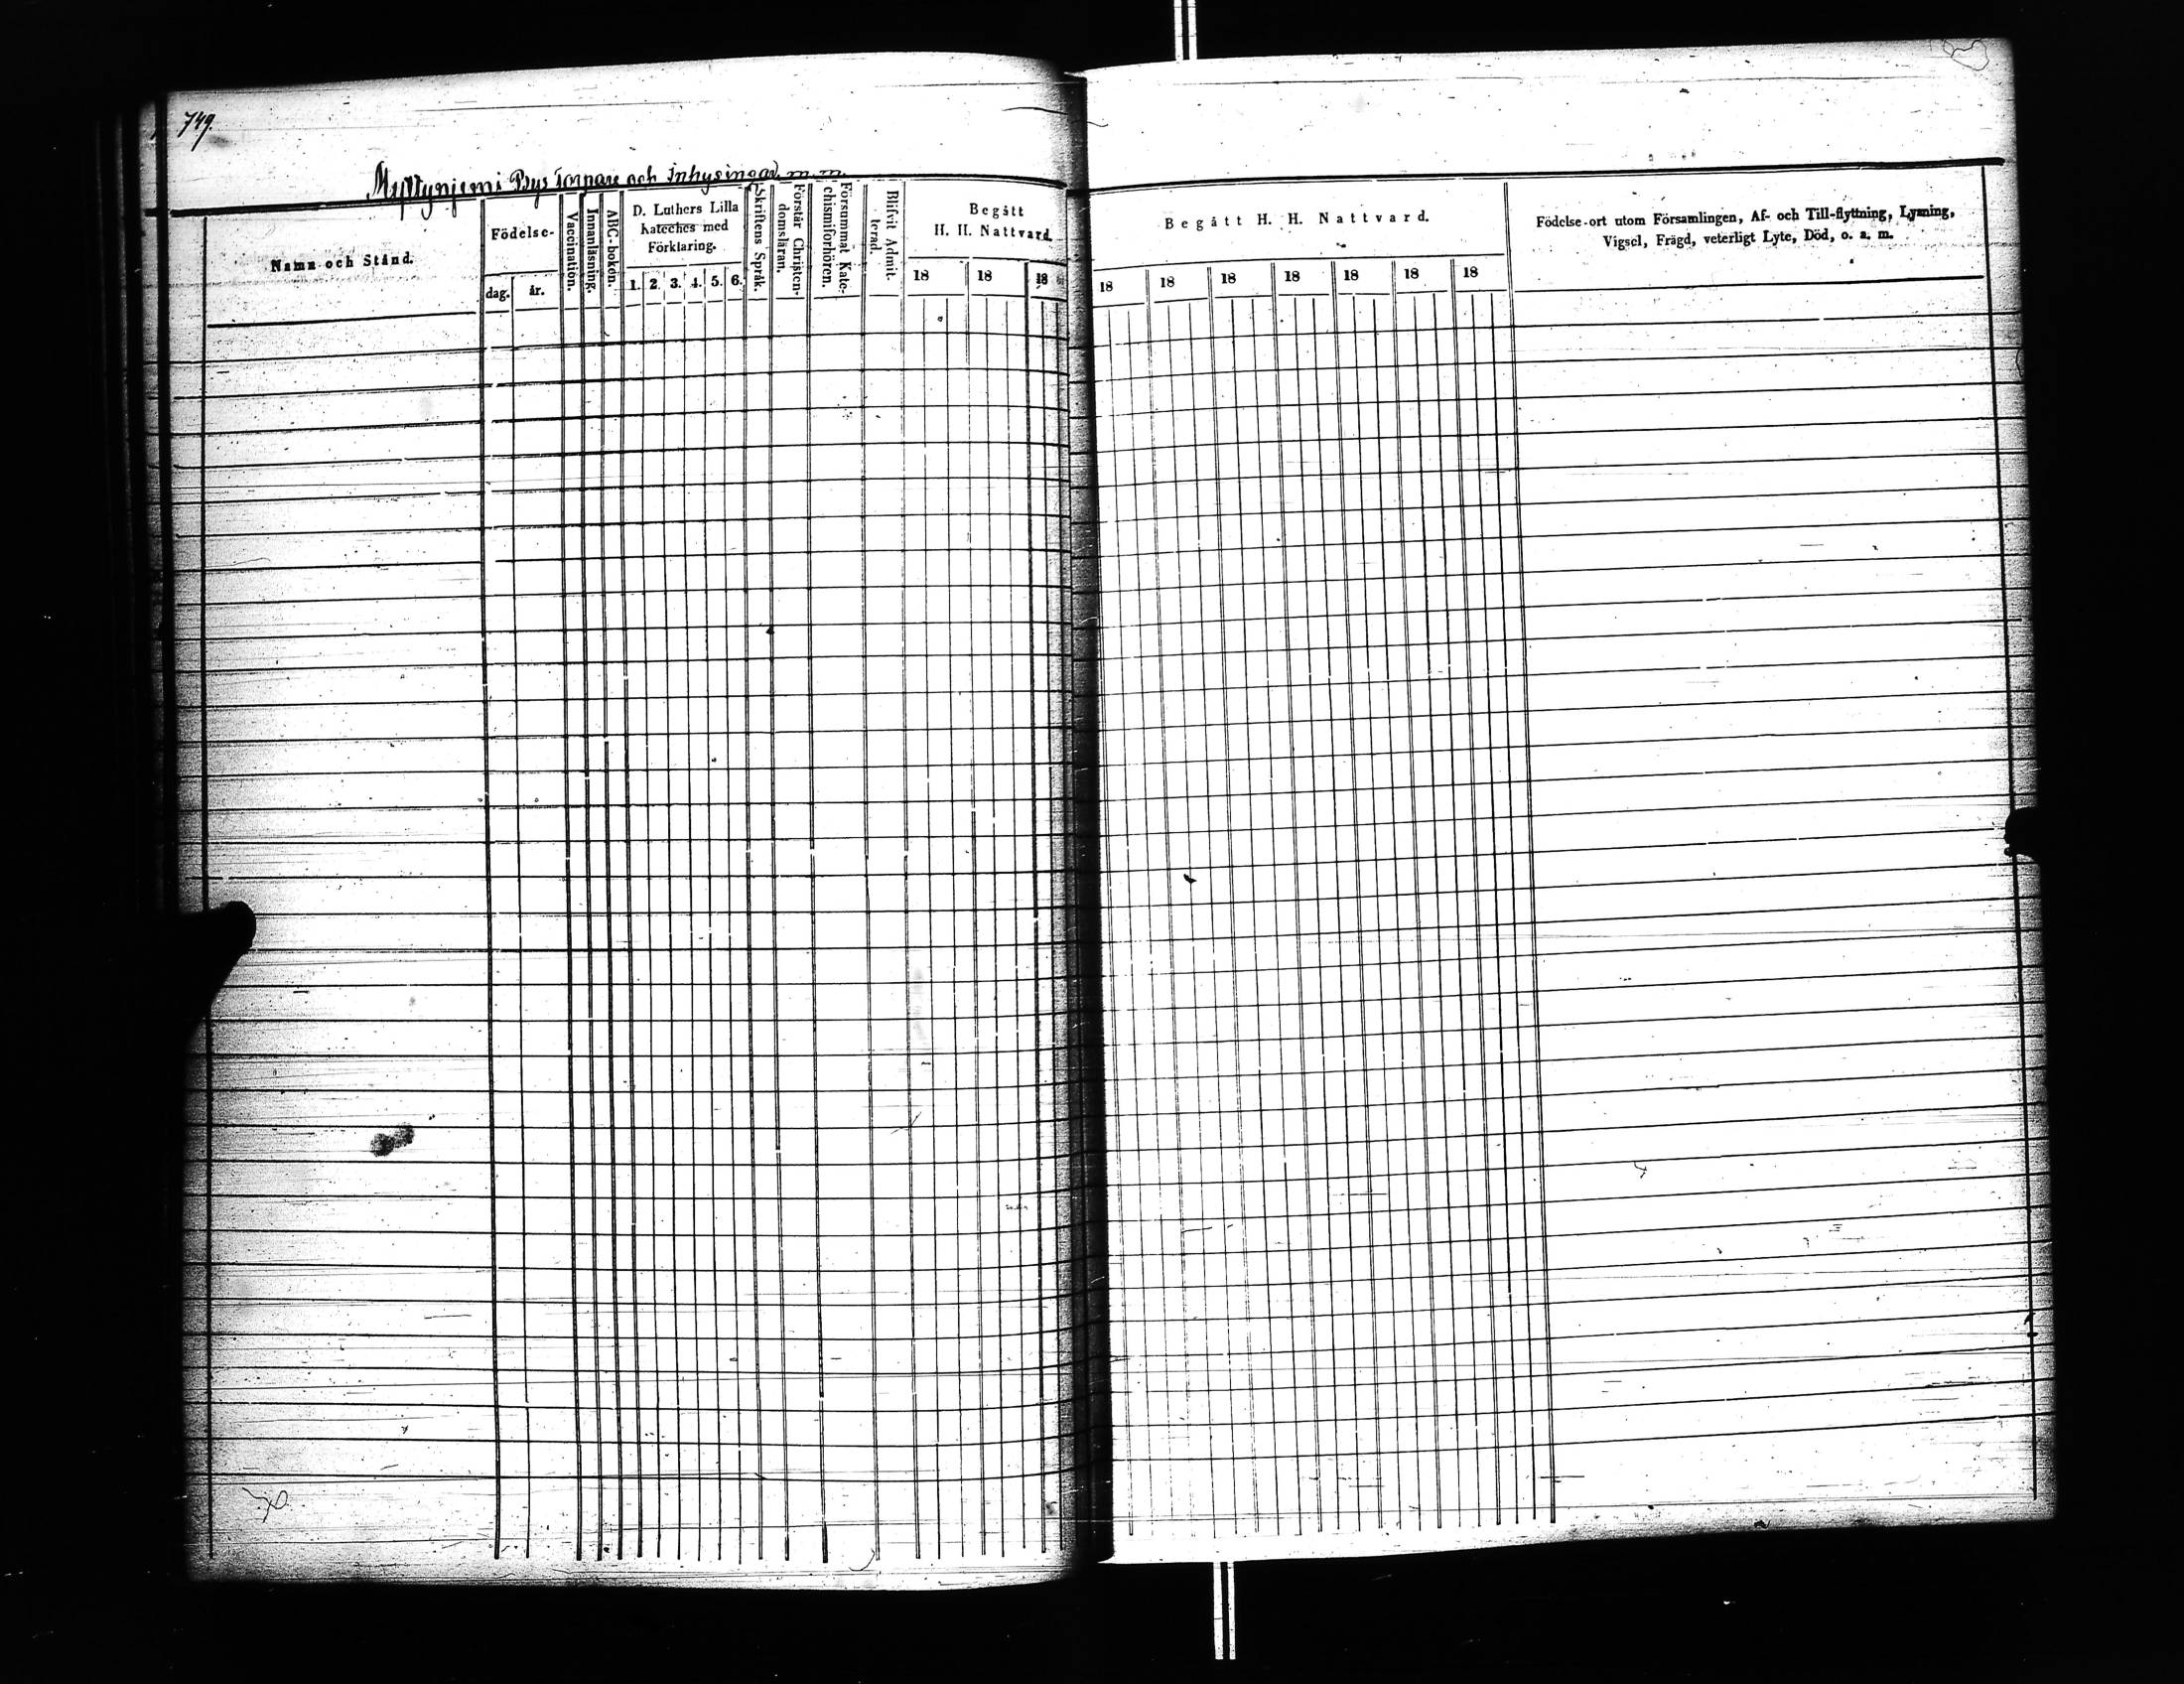 749.
Myllyniemi Bys Torpare och Inhysingar m. m.
Namn och Stånd.
Födelse-
dag.
år.
Vaccination.
Innanläsning.
ABC-boken.
D. Luthers Lilla
kateches med
Förklaring.
1. 2. 3. 4. 5. 6.
Skriftens Språk.
Förstår Christen-
domsläran.
Försummat Kate-
chismiförhören.
Blifvit Admit-
terad.
Begått
H. H. Nattvard.
18 18 18
Begått H. H. Nattvard.
18 18 18 18 18 18 18
Födelse-ort utom Församlingen, Af- och Till-flyttning, Lysning,
Vigsel, Frägd, veterligt Lyte, Död, o. s. m.